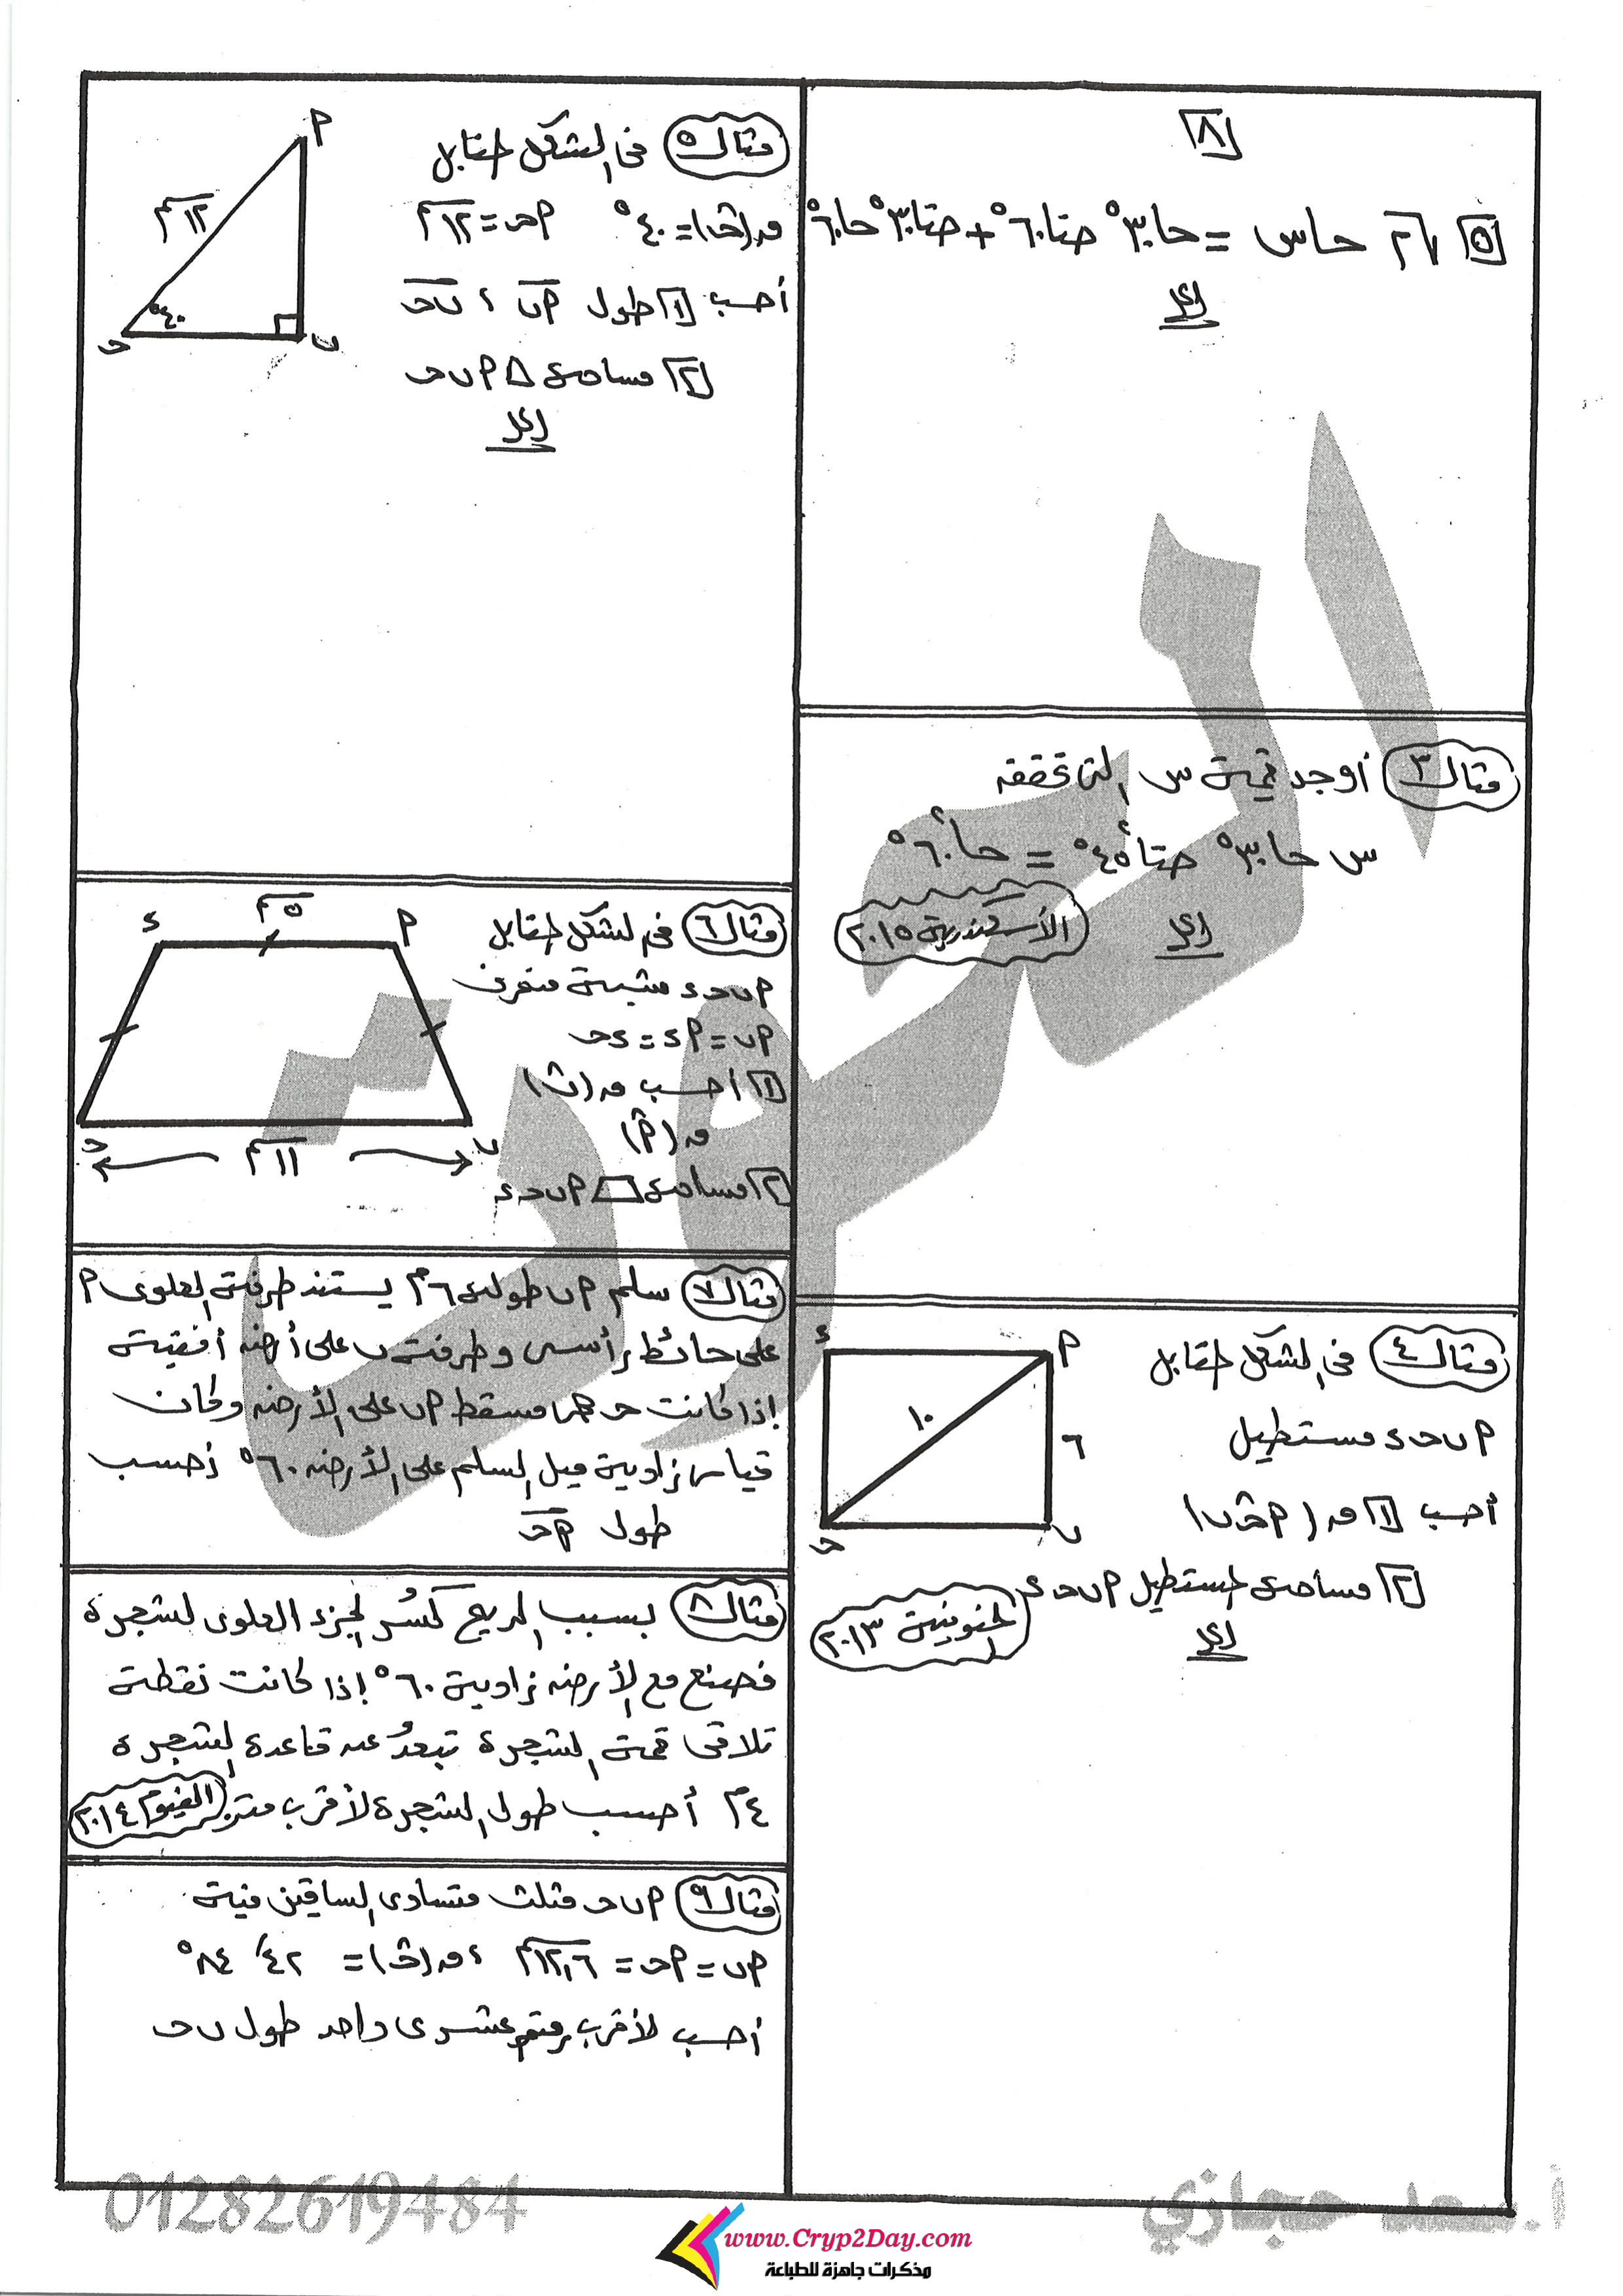 ٨
٥ √٢ حاس = حا٣٠° حتا٦٠° + حتا٣٠° حا٦٠°
الحل
مثال ٣ أوجد قيمة س التى تحقق
س حا٣٠° حتا²٤٥° = حا²٦٠°
الحل
الأسكندرية ٢٠١٥
مثال ٤ فى الشكل المقابل
أ ب حـ ء مستطيل
أحسب ١ ق (أ حـ ب)
٢ مساحة المستطيل أ ب حـ ء
الحل
المنوفية ٢٠١٣
ء
أ
١٠
٦
حـ
ب
مثال ٥ فى الشكل المقابل
ق(حـ) = ٤٠° أحـ = ١٢سم
أحسب ١ طول أب ، ب حـ
٢ مساحة △ أ ب حـ
الحل
أ
١٢سم
٤٠°
حـ
ب
مثال ٦ فى الشكل المقابل
أ ب حـ ء شبه منحرف
أب = أء = ءحـ
١ أحسب ق(ب)
ق(أ)
٢ مساحة أ ب حـ ء
ء
٥سم
أ
حـ
ب
١١سم
مثال ٧ سلم أب طوله ٦م يستند طرفه العلوى أ
على حائط رأسى وطرفه ب على أرض أفقية
إذا كانت حـ هى مسقط أ ب على الأرض وكان
قياس زاوية ميل السلم على الأرض ٦٠° أحسب
طول أحـ
مثال ٨ بسبب الريح كُسر الجزء العلوى لشجرة
فصنع مع الأرض زاوية ٦٠° إذا كانت نقطة
تلاقى قمة الشجرة تبعدُ عن قاعدة الشجرة
٤م أحسب طول الشجرة لأقرب متر
الفيوم ٢٠١٤
مثال ٩ أ ب حـ مثلث متساوى الساقين فيه
أب = أحـ = ١٢,٦سم ، ق(حـ) = ٢٤ ٨٤°
أحسب لأقرب رقم عشرى واحد طول ب حـ
01282619484
أ.سعد حجازي
www.Cryp2Day.com
مذكرات جاهزة للطباعة